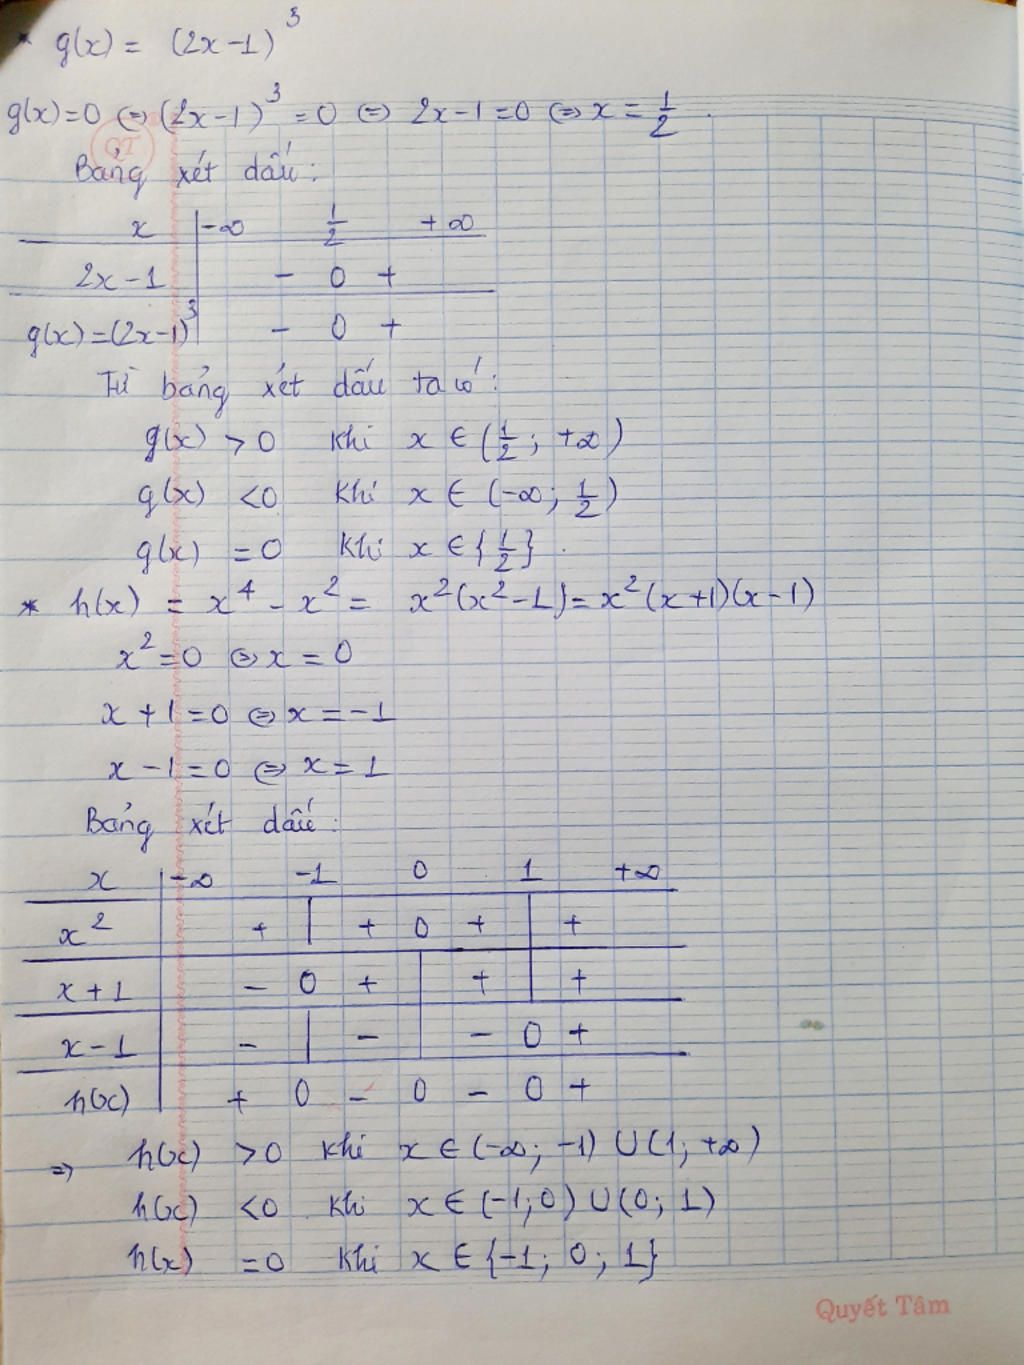 * g(x) = (2x-1)³
g(x)=0 ⇔ (2x-1)³ = 0 ⇔ 2x-1=0 ⇔ x = 1/2.
QT
Bảng xét dấu:
x | -∞ 1/2 +∞
2x-1 | - 0 +
g(x)=(2x-1)³ | - 0 +
Từ bảng xét dấu ta có:
g(x) > 0 khi x ∈ (1/2; +∞)
g(x) <0 khi x ∈ (-∞; 1/2)
g(x) = 0 khi x ∈ {1/2}.
* h(x) = x⁴ - x² = x²(x²-1) = x²(x+1)(x-1)
x²=0 ⇔ x = 0
x+1=0 ⇔ x = -1
x-1=0 ⇔ x = 1
Bảng xét dấu:
x | -∞ -1 0 1 +∞
x² | + | + 0 + | +
x+1 | - 0 + | + | +
x-1 | - | - | - 0 +
h(x) | + 0 - 0 - 0 +
⇒ h(x) >0 khi x ∈ (-∞; -1) ∪ (1; +∞)
h(x) <0 khi x ∈ (-1; 0) ∪ (0; 1)
h(x) =0 khi x ∈ {-1; 0; 1}
Quyết Tâm